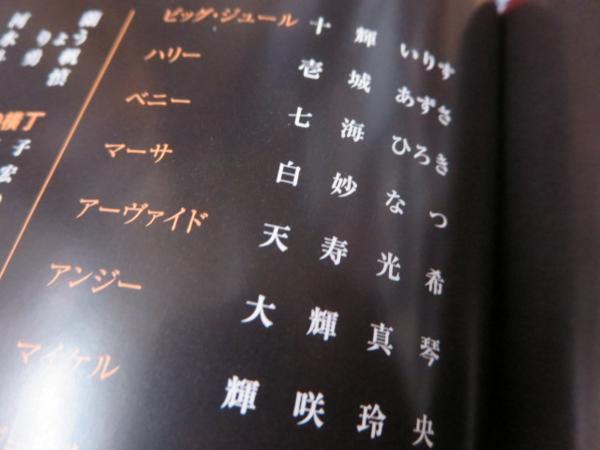 ビッグ・ジュール 十輝いりす
ハリー 壱城あずさ
ベニー 七海ひろき
マーサ 白妙なつ
アーヴァイド 天寿光希
アンジー 大輝真琴
マイケル 輝咲玲央
横丁
子
宏